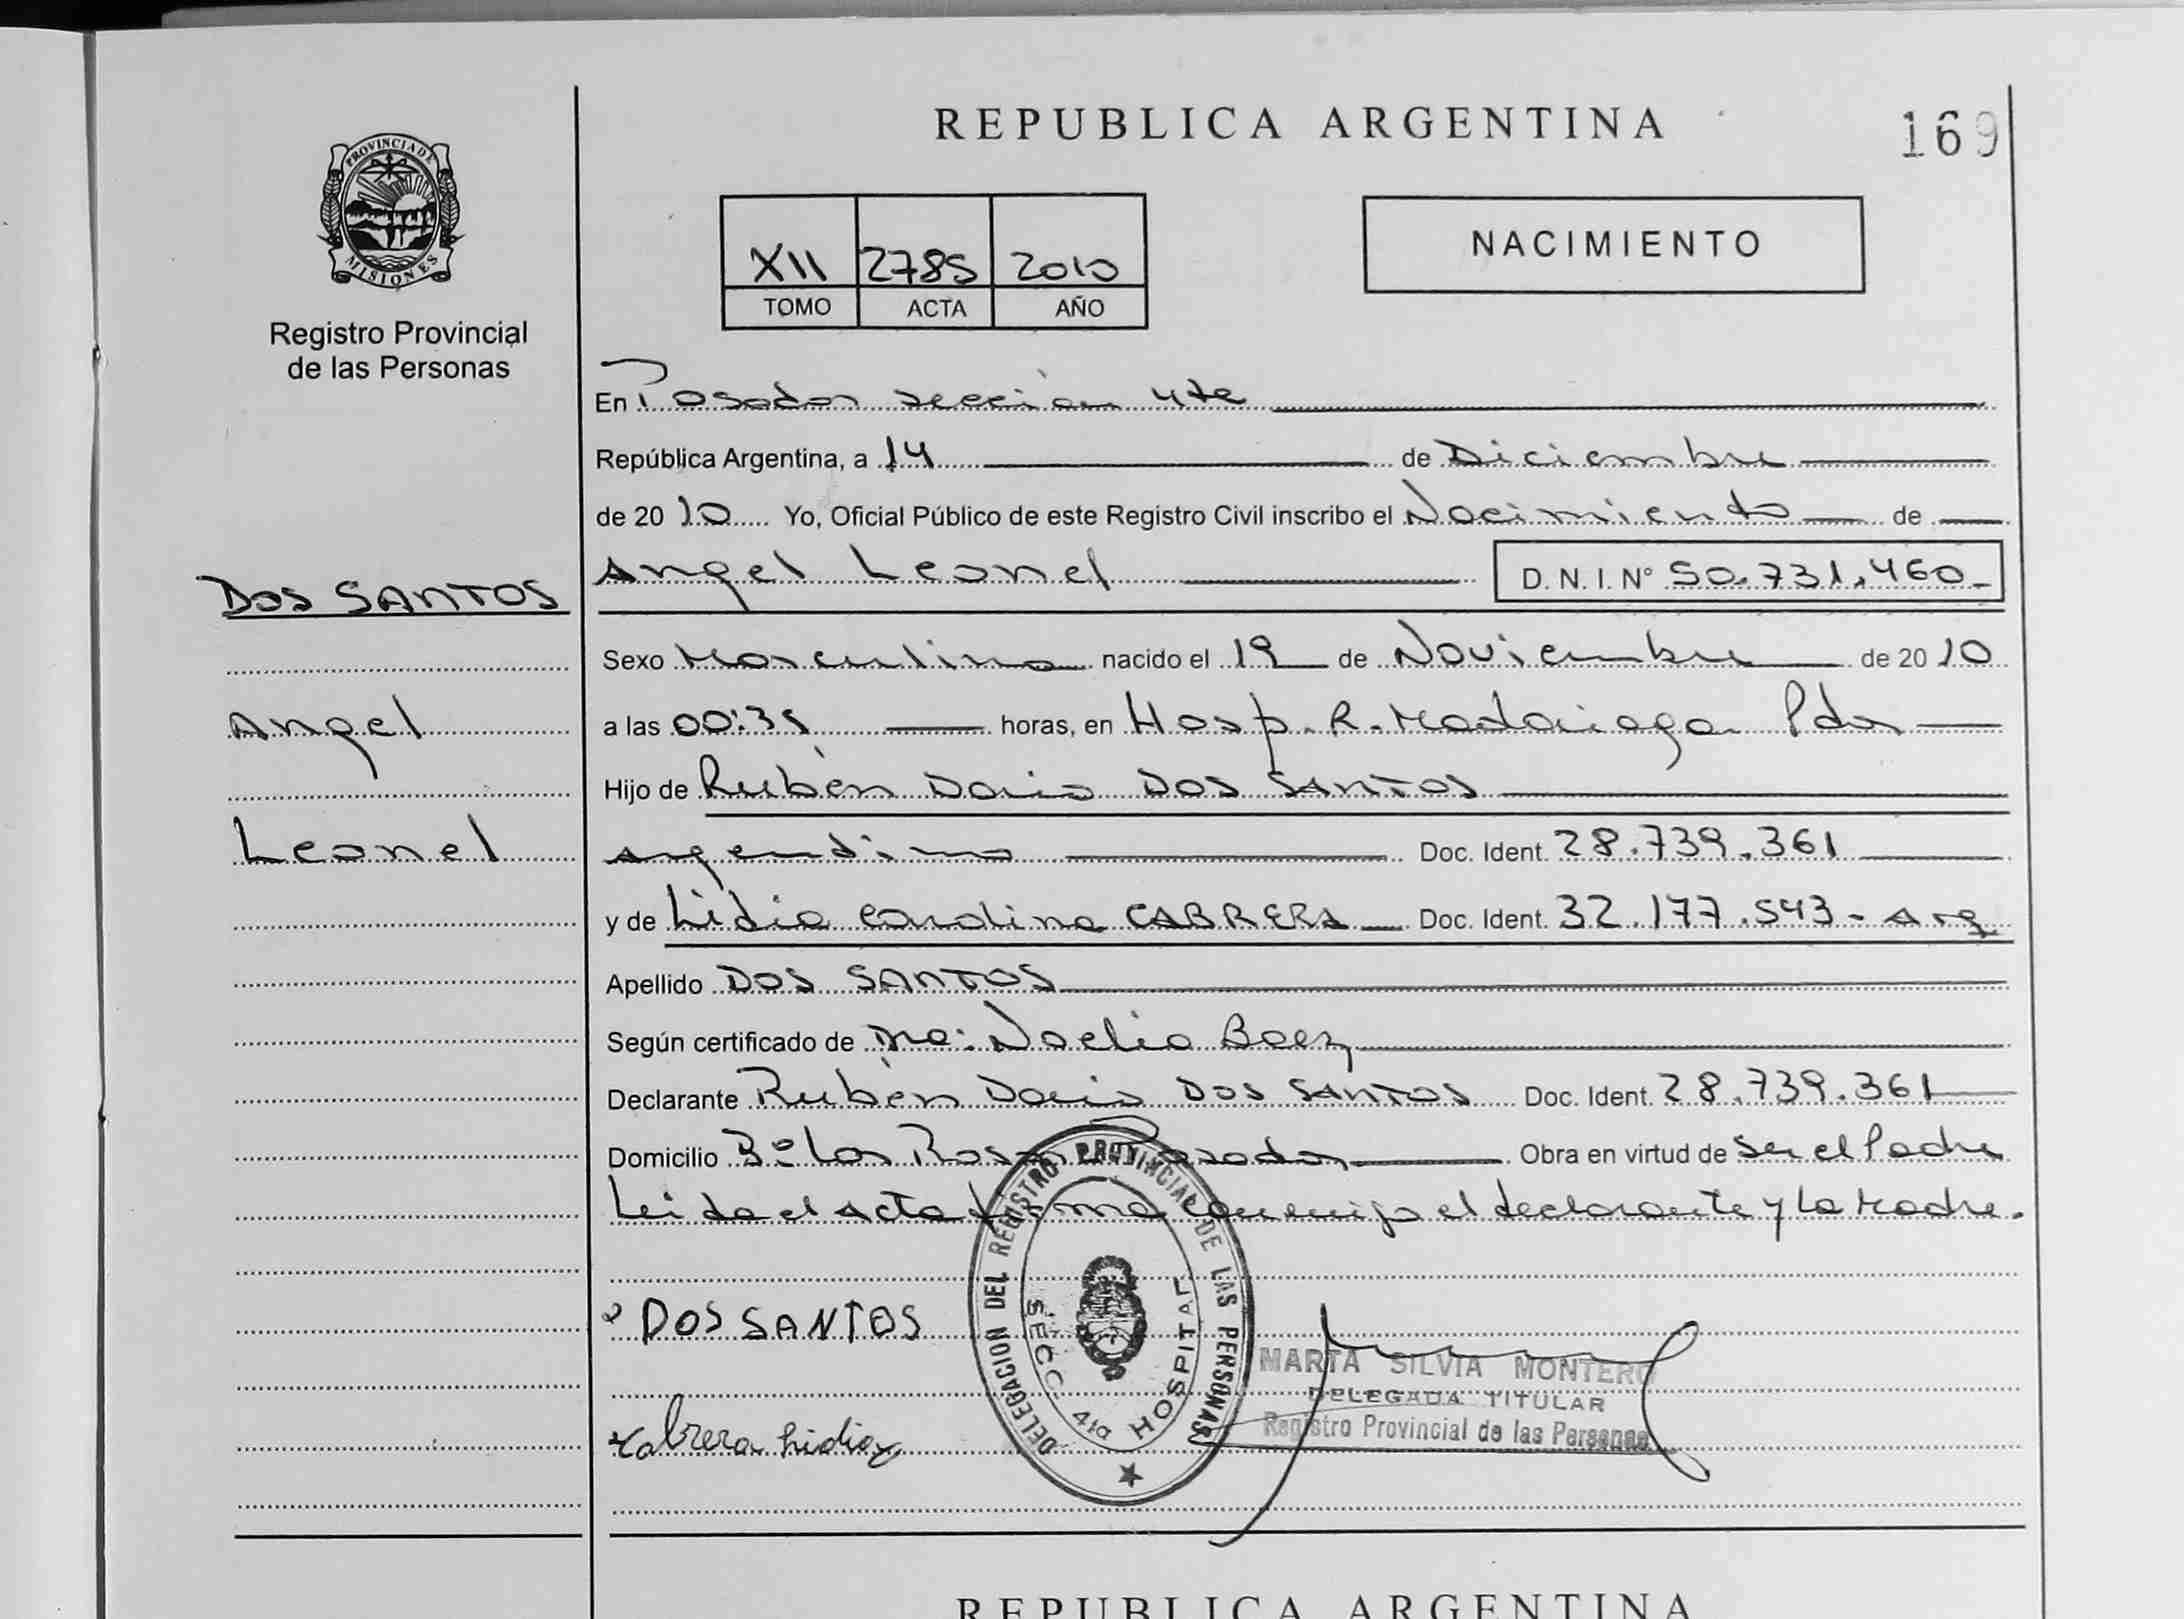 REPUBLICA ARGENTINA
169
PROVINCIA DE MISIONES
Registro Provincial
de las Personas
XII 2785 2010
TOMO ACTA AÑO
NACIMIENTO
En Posadas sección 4ta
República Argentina, a 14 de Diciembre
de 2010 Yo, Oficial Público de este Registro Civil inscribo el Nacimiento de
Angel Leonel D. N. I. N° 50.731.460
DOS SANTOS
Angel
Leonel
Sexo Masculino nacido el 19 de Noviembre de 2010
a las 00:35 horas, en Hosp. R. Madariaga Pdas
Hijo de Rubén Dario DOS SANTOS
Argentino Doc. Ident. 28.739.361
y de Lidia Carolina CABRERA Doc. Ident. 32.177.543 - Arg
Apellido DOS SANTOS
Según certificado de Noelia Baez
Declarante Rubén Dario DOS SANTOS Doc. Ident. 28.739.361
Domicilio B° Las Rosas Posadas Obra en virtud de ser el Padre
Leida el Acta firma conmigo el declarante y la Madre.
DOS SANTOS
Cabrera Lidia
DELEGACION DEL REGISTRO PROVINCIAL DE LAS PERSONAS
SECC. 4ta HOSPITAL
MARTA SILVIA MONTERO
DELEGADA TITULAR
Registro Provincial de las Personas
REPUBLICA ARGENTINA